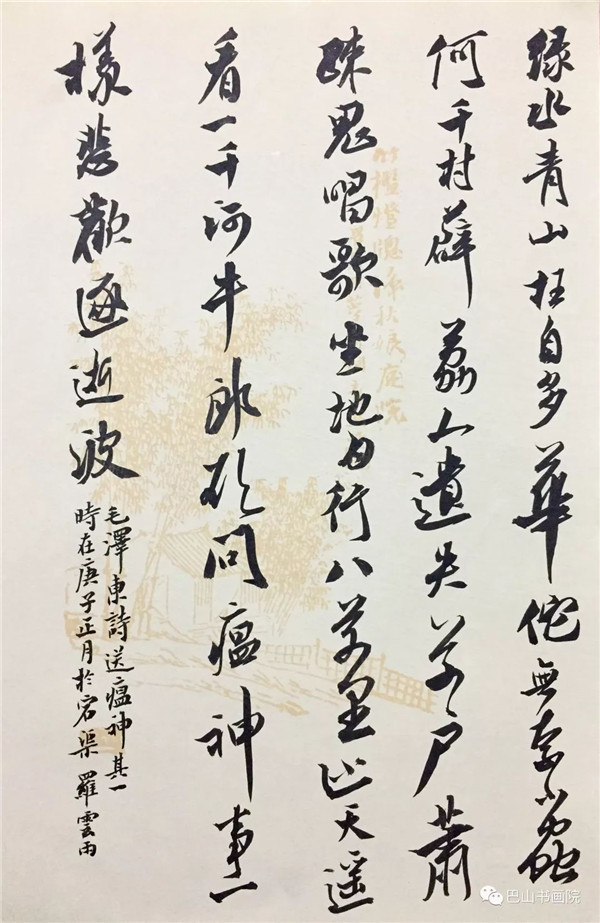 緑水青山枉自多華佗無奈小蟲
何千村薜荔人遺失萬戶蕭
踈鬼唱歌坐地日行八萬里巡天遥
看一千河牛郎欲問瘟神事一
樣悲歡逐逝波
毛澤東詩送瘟神其一
時在庚子正月於宕渠羅雲雨
巴山书画院